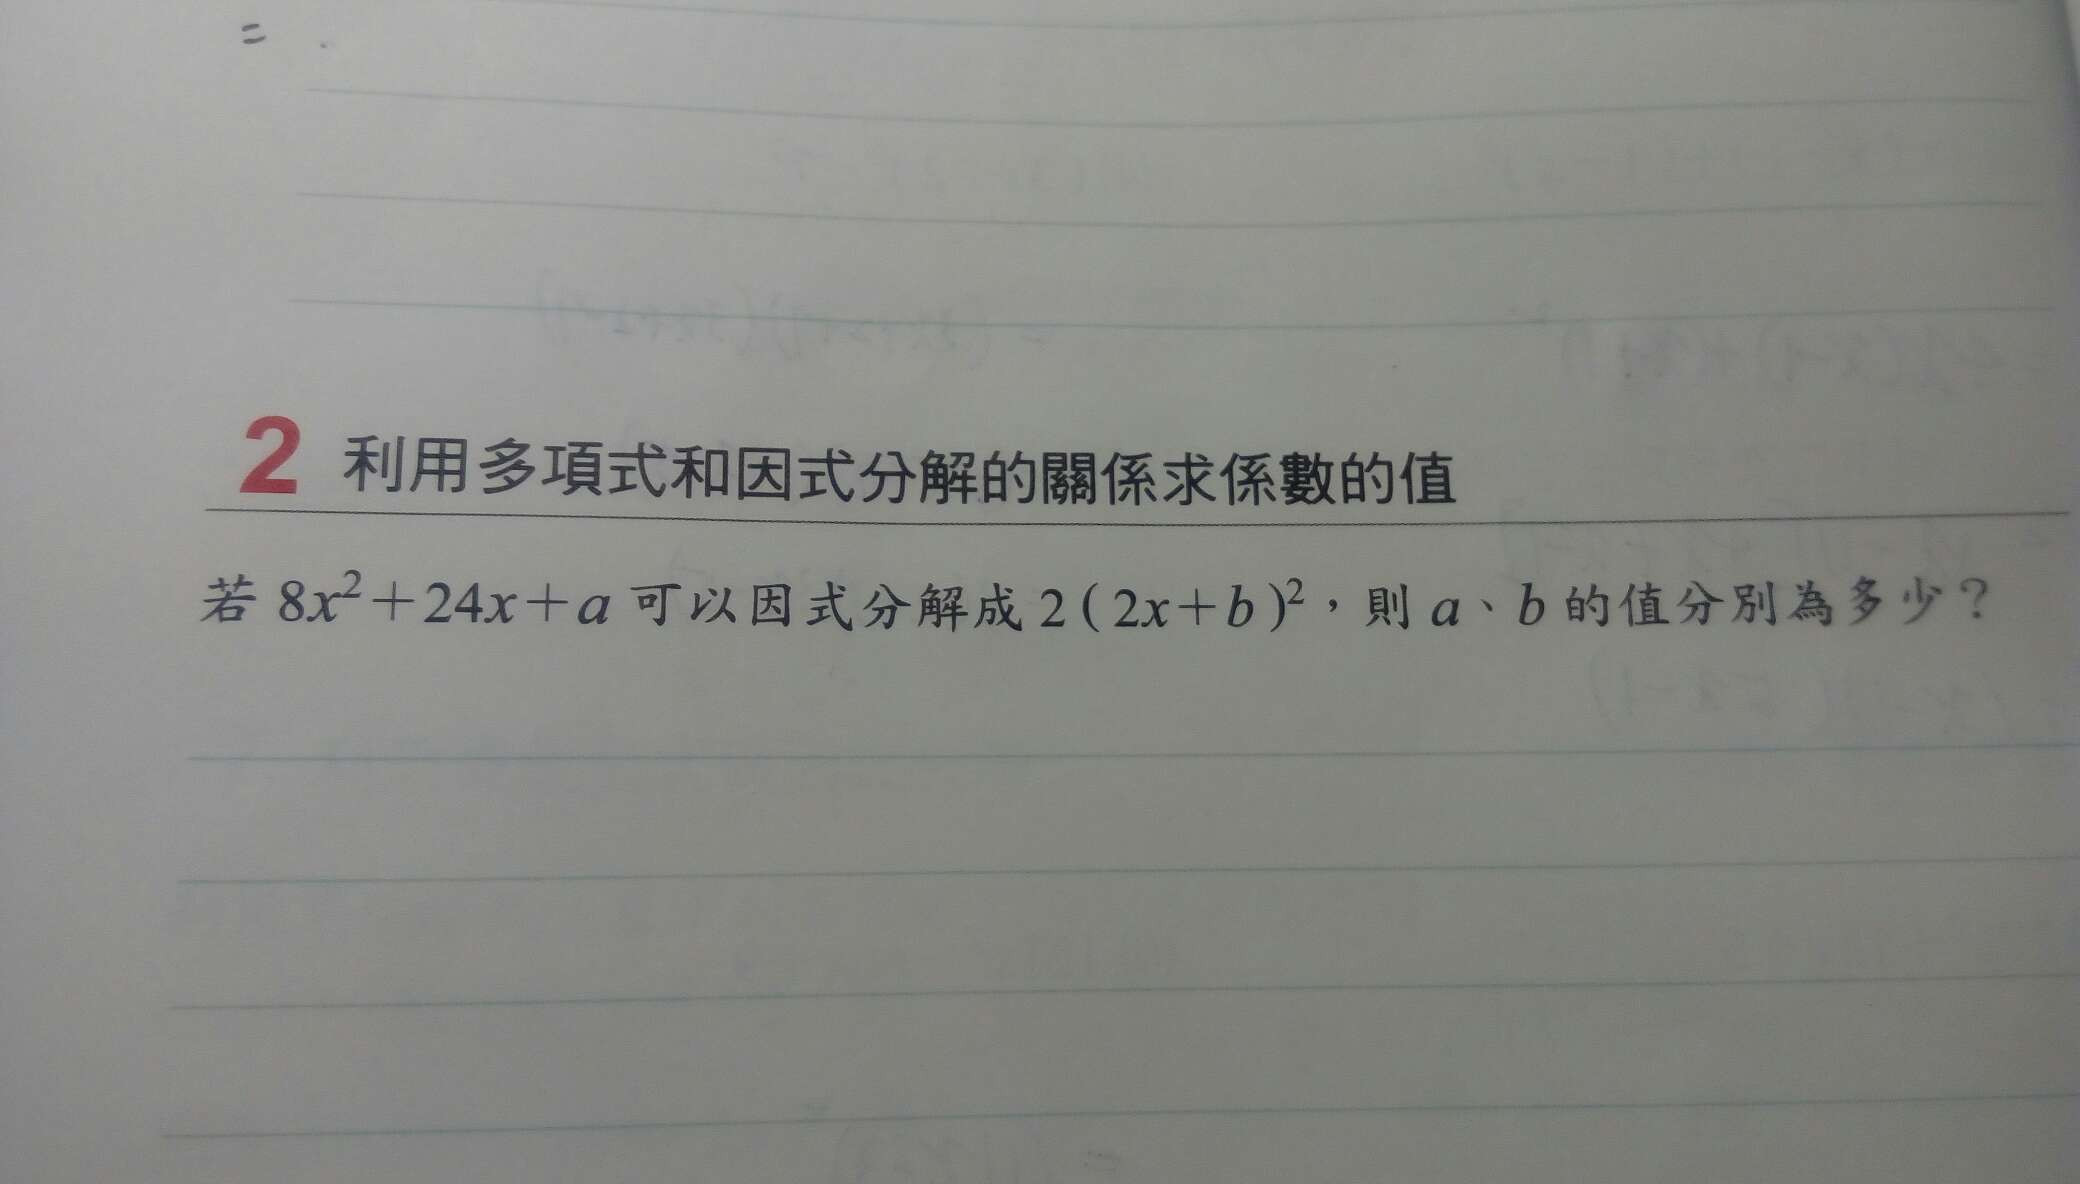 =
2 利用多項式和因式分解的關係求係數的值
若 8x²+24x+a 可以因式分解成 2(2x+b)²，則 a、b 的值分別為多少？